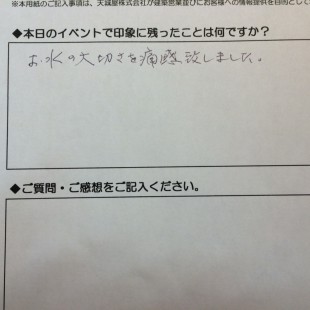 ※本用紙のご記入事項は、天誠屋株式会社が建築営業並びにお客様への情報提供を目的として
◆本日のイベントで印象に残ったことは何ですか？
お水の大切さを痛感致しました。
◆ご質問・ご感想をご記入ください。